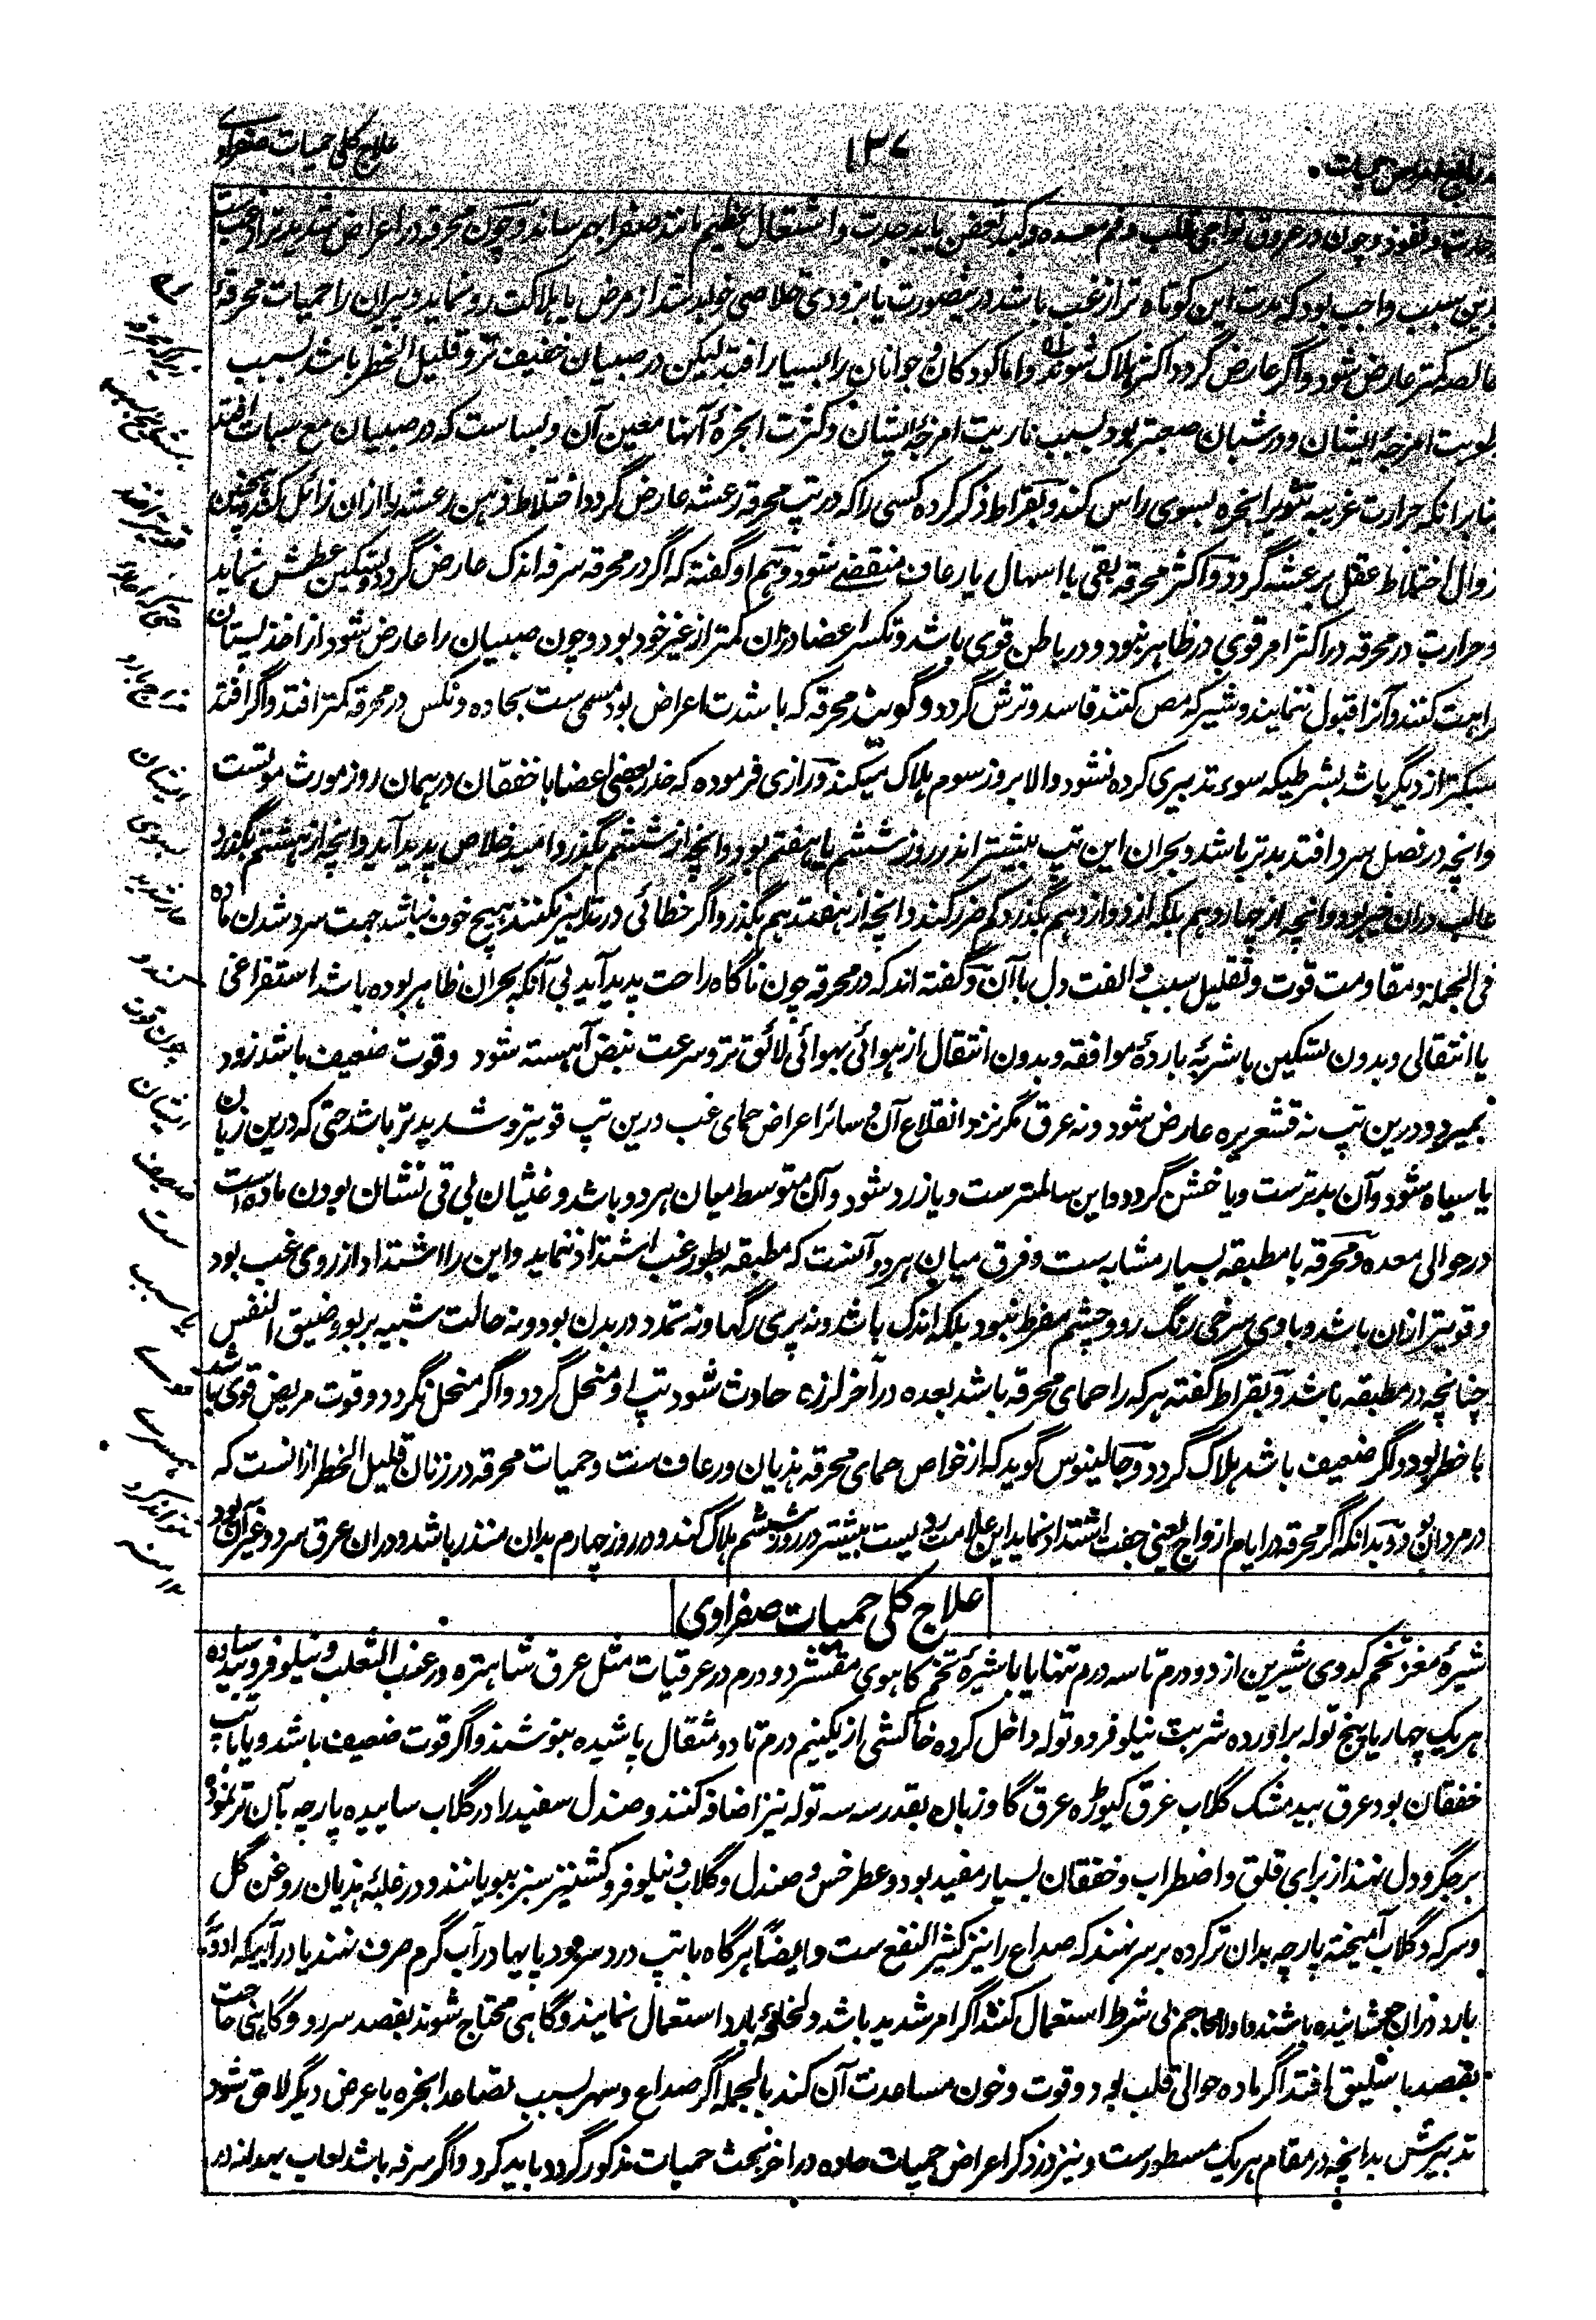 علاج کلی حمیات صفراوی
۱۳۷
حدت و نفوذ و چون در عروق نواحی قلب و فم معده و کبد تعفن یابد حدت و اشتعال عظیم مانند صفرا بهم رساند و چون محرقه در اعراض شدیدتر از غب ست
بدین سبب واجب بود که مدت این کوتاه تر از غب باشد درینصورت یا بزودی خلاصی خواهد شد از مرض یا هلاکت رو نماید و پیران را حمیات محرقهٔ
خالصه کمتر عارض شود و اگر عارض گردد اکثر هلاک شوند و اما کودکان و جوانان را بسیار افتد لیکن در صبیان خفیف تر و قلیل الخطر باشد بسبب
رطوبت امزجهٔ ایشان و در شبان صعبتر بود بسبب ناریت امزجهٔ ایشان و کثرت ابخرهٔ آنها معین آن و بسا است که در صبیان مع سبات افتد
بنابر آنکه حرارت غریبه تثویر ابخره بسوی راس کند و بقراط ذکر کرده کسی را که در تپ محرقه رعشه عارض گردد اختلاط ذهن رعشه را ازان زائل کند و همچنین
زوال اختلاط عقل برعشه گردد و اکثر محرقه بقی یا اسهال یا رعاف منقضی شود و هم او گفته که اگر در محرقه سرفه اندک عارض گردد تسکین عطش نماید
و حرارت در محرقه در اکثر امر قوی در ظاهر نبود و در باطن قوی باشد و تکسر اعضا دران کمتر از غیر خود بود و چون صبیان را عارض شود از اخذ پستان
کراهت کنند و آنرا قبول ننمایند و شیر که مص کنند فاسد و ترش گردد و گویند محرقه که با شدت اعراض بود مسمی ست بحاده و نکس در محرقه کمتر افتد و اگر افتد
سبکتر از دیگر باشد بشرطیکه سوء تدبیری کرده نشود والا بروز سوم هلاک میکند و رازی فرموده که خدر بعضی اعضا با خفقان در همان روز مورث موتست
و انچه در فصل سرد افتد بدتر باشد و بحران این تپ بیشتر اندر روز ششم یا هفتم بود و انچه از ششم بگذرد امید خلاص پدید آید و انچه از هشتم بگذرد
غالب دران خیر بود و انچه از چهاردهم بلکه از دوازدهم بگذرد کم ضرر کند و انچه از هفتدهم بگذرد اگر خطائی در تدابیر نکنند هیچ خوف نباشد جهت سرد شدن ماده
فی الجمله و مقاومت قوت و تقلیل سبب و الفت دل با آن و گفته اند که در محرقه چون ناگاه راحت پدید آید بی آنکه بحران ظاهر بوده باشد استفراغی
یا انتقالی و بدون تسکین باشربهٔ باردهٔ موافقه و بدون انتقال از هوائی بهوائی لائق تر و سرعت نبض آهسته شود و قوت ضعیف باشد زود
بمیرد و درین تپ نه قشعریره عارض شود و نه عرق مگر نزد انقلاع آن و سائر اعراض حمای غب درین تپ قویتر و شدیدتر باشد حتی که درین زبان
یا سیاه شود و آن بدترست و یا خشن گردد و این سالمترست و یا زرد شود و آن متوسط میان هر دو باشد و غثیان بی قی نشان بودن ماده است
در حوالی معده و محرقه با مطبقه بسیار مشابه ست و فرق میان هر دو آنست که مطبقه بطور غب اشتداد ننماید و این را اشتداد از روی غب بود
و قویتر ازان باشد و با وی سرخی رنگ رو و چشم مفرط نبود بلکه اندک باشد و نه پری رگها و نه تمدد در بدن بود و نه حالت شبیه بربو و ضیق النفس
چنانچه در مطبقه باشد و بقراط گفته هر که را حمای محرقه باشد بعده در آخر لرزه حادث شود تپ او منحل گردد و اگر منحل نگردد و قوت مریض قوی باشد
با خطر بود و اگر ضعیف باشد هلاک گردد و جالینوس گوید که از خواص حمای محرقه هذیان و رعاف ست و حمیات محرقه در زنان قلیل الخطر ازانست که
در مردان بود و بدانکه اگر محرقه در ایام ازواج یعنی جفت اشتداد نماید این علامت ردیست بیشتر در روز ششم هلاک کند و در روز چهارم بدان منذر باشد و دران عرق سرد و غیر آن بود
علاج کلی حمیات صفراوی
شیرهٔ مغز تخم کدوی شیرین از دو درم تا سه درم تنها یا با شیرهٔ تخم کاهوی مقشر دو درم در عرقیات مثل عرق شاهتره و عنب الثعلب و نیلوفر و بید ساده
هر یک چهار یا پنج توله برآورده شربت نیلوفر دو توله داخل کرده خاکشی از یکنیم درم تا دو مثقال پاشیده بنوشند و اگر قوت ضعیف باشد و یا با تپ
خفقان بود عرق بیدمشک گلاب عرق کیوڑه عرق گاوزبان بقدر سه سه توله نیز اضافه کنند و صندل سفید را در گلاب ساییده پارچه بآن تر نموده
بر جگر و دل نهند از برای قلق و اضطراب و خفقان بسیار مفید بود و عطر خس و صندل و گلاب و نیلوفر و کشنیز سبز ببویانند و در غلبهٔ هذیان روغن گل
و سرکه و گلاب آمیخته پارچه بدان تر کرده بر سر نهند که صداع را نیز کثیر النفع ست و ایضاً هرگاه با تپ درد سر بود پایها در آب گرم صرف نهند یا در آبیکه ادویهٔ
بارد دران جوشانیده باشند و اولا محاجم بی شرط استعمال کنند اگر امر شدید باشد و لخلخهٔ بارد استعمال نمایند و گاهی محتاج شوند بفصد سررو و گاهی حاجت
بفصد باسلیق افتد اگر ماده حوالی قلب بود و قوت و خون مساعدت آن کند بالجمله اگر صداع و سهر بسبب تصاعد ابخره یا عرض دیگر لاحق شود
تدبیرش بدانچه در مقام هر یک مسطورست و نیز در ذکر اعراض حمیات حاده در آخر بحث حمیات مذکور گردد باید کرد و اگر سرفه باشد لعاب بهدانه در